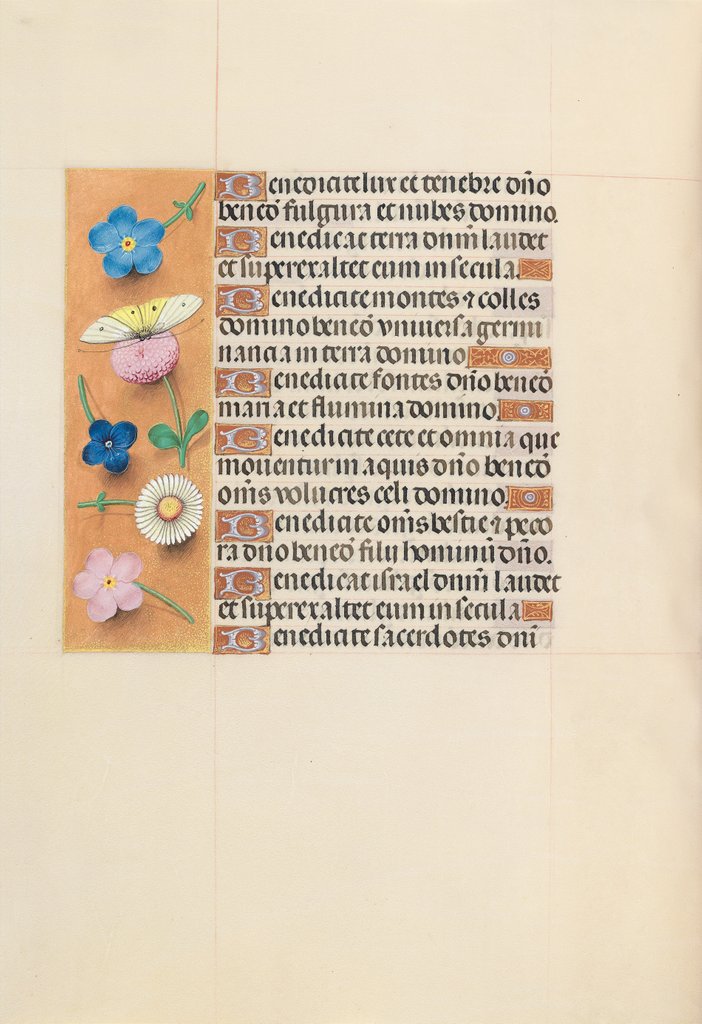 Benedicite lux et tenebre dño
beneđ fulgura et nubes domino.
Benedicat terra dnm̃ laudet
et superexaltet eum in secula.
Benedicite montes ⁊ colles
domino beneđ vniuersa germi
nancia in terra domino
Benedicite fontes dño beneđ
maria et flumina domino.
Benedicite cete et omnia que
mouentur in aquis dño beneđ
oms̃ volucres celi domino.
Benedicite oms̃ bestie ⁊ peco
ra dño beneđ filij hominũ dño.
Benedicat israel dnm̃ laudet
et superexaltet eum in secula
Benedicite sacerdotes dnĩ